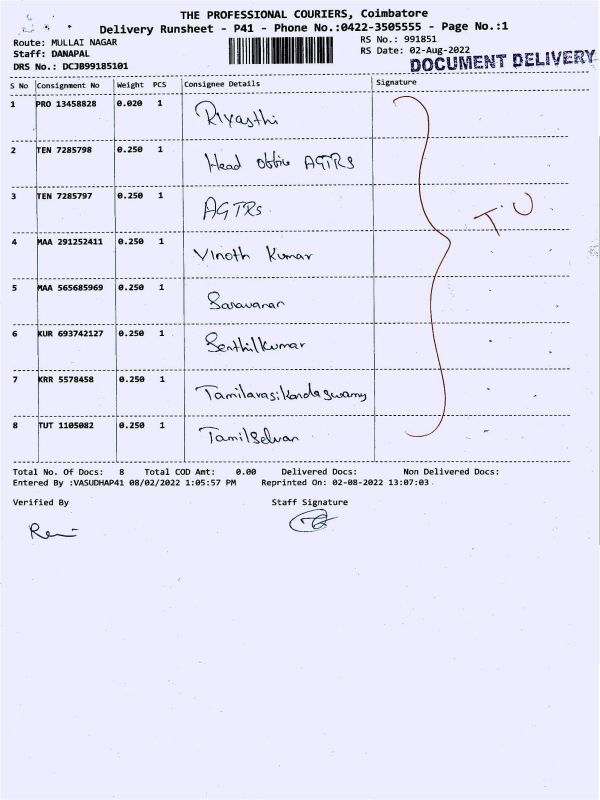 THE PROFESSIONAL COURIERS, Coimbatore
Delivery Runsheet - P41 - Phone No.:0422-3505555 - Page No.:1
Route: MULLAI NAGAR RS No.: 991851
Staff: DANAPAL RS Date: 02-Aug-2022
DRS No.: DCJB99185101 DOCUMENT DELIVERY
S No Consignment No Weight PCS Consignee Details Signature
1 PRO 13458828 0.020 1 Riyasthi
2 TEN 7285798 0.250 1 Head Office AGTRS
3 TEN 7285797 0.250 1 AGTRS
T.U
4 MAA 291252411 0.250 1 Vinoth Kumar
5 MAA 565685969 0.250 1 Saravanan
6 KUR 693742127 0.250 1 Senthilkumar
7 KRR 5578458 0.250 1 Tamilarasikandaswamy
8 TUT 1105082 0.250 1 Tamilselvan
Total No. Of Docs: 8 Total COD Amt: 0.00 Delivered Docs: Non Delivered Docs:
Entered By :VASUDHAP41 08/02/2022 1:05:57 PM Reprinted On: 02-08-2022 13:07:03
Verified By Staff Signature